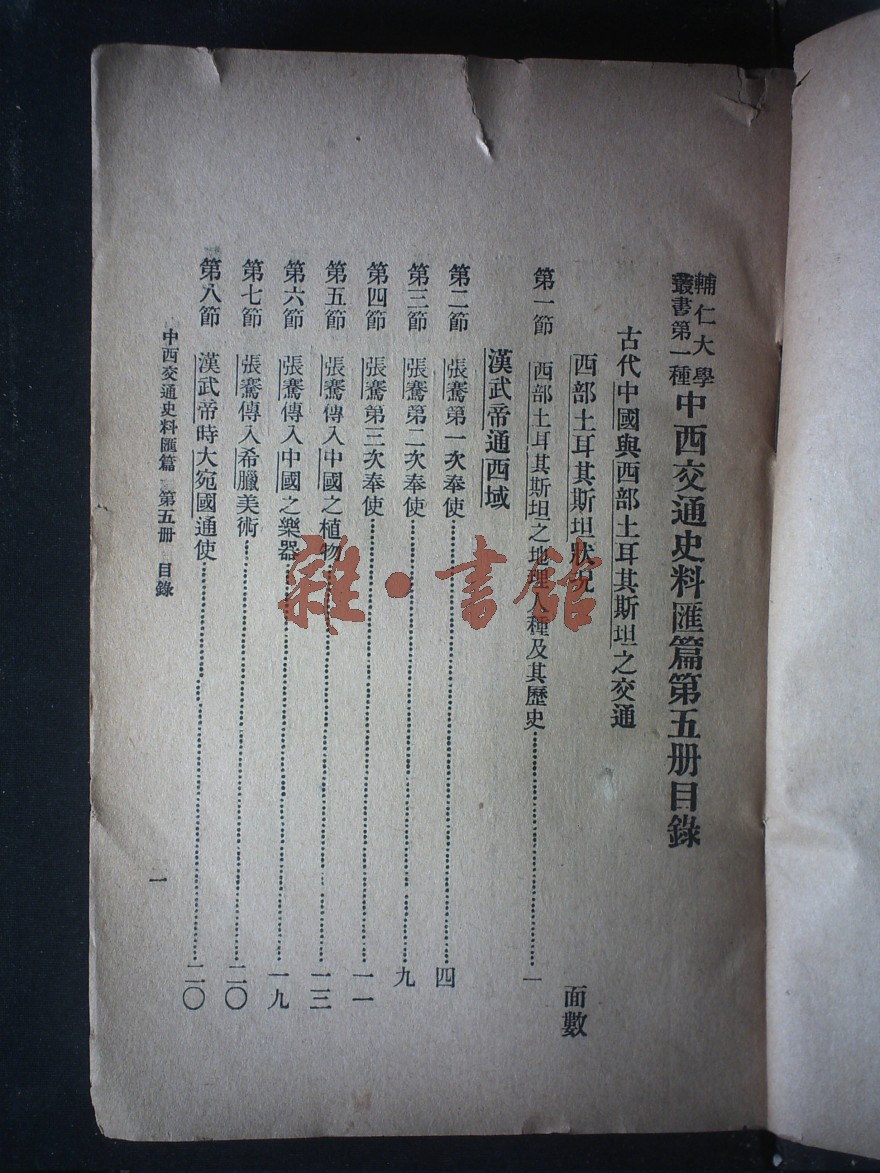 輔仁大學
叢書第一種
中西交通史料匯篇第五册目錄
古代中國與西部土耳其斯坦之交通
面數
西部土耳其斯坦狀況
第一節 西部土耳其斯坦之地理人種及其歷史 一
漢武帝通西域
第二節 張騫第一次奉使 四
第三節 張騫第二次奉使 九
第四節 張騫第三次奉使 一一
第五節 張騫傳入中國之植物 一三
第六節 張騫傳入中國之樂器 一九
第七節 張騫傳入希臘美術 二〇
第八節 漢武帝時大宛國通使 二〇
中西交通史料匯篇 第五册 目錄
一
雜·書館